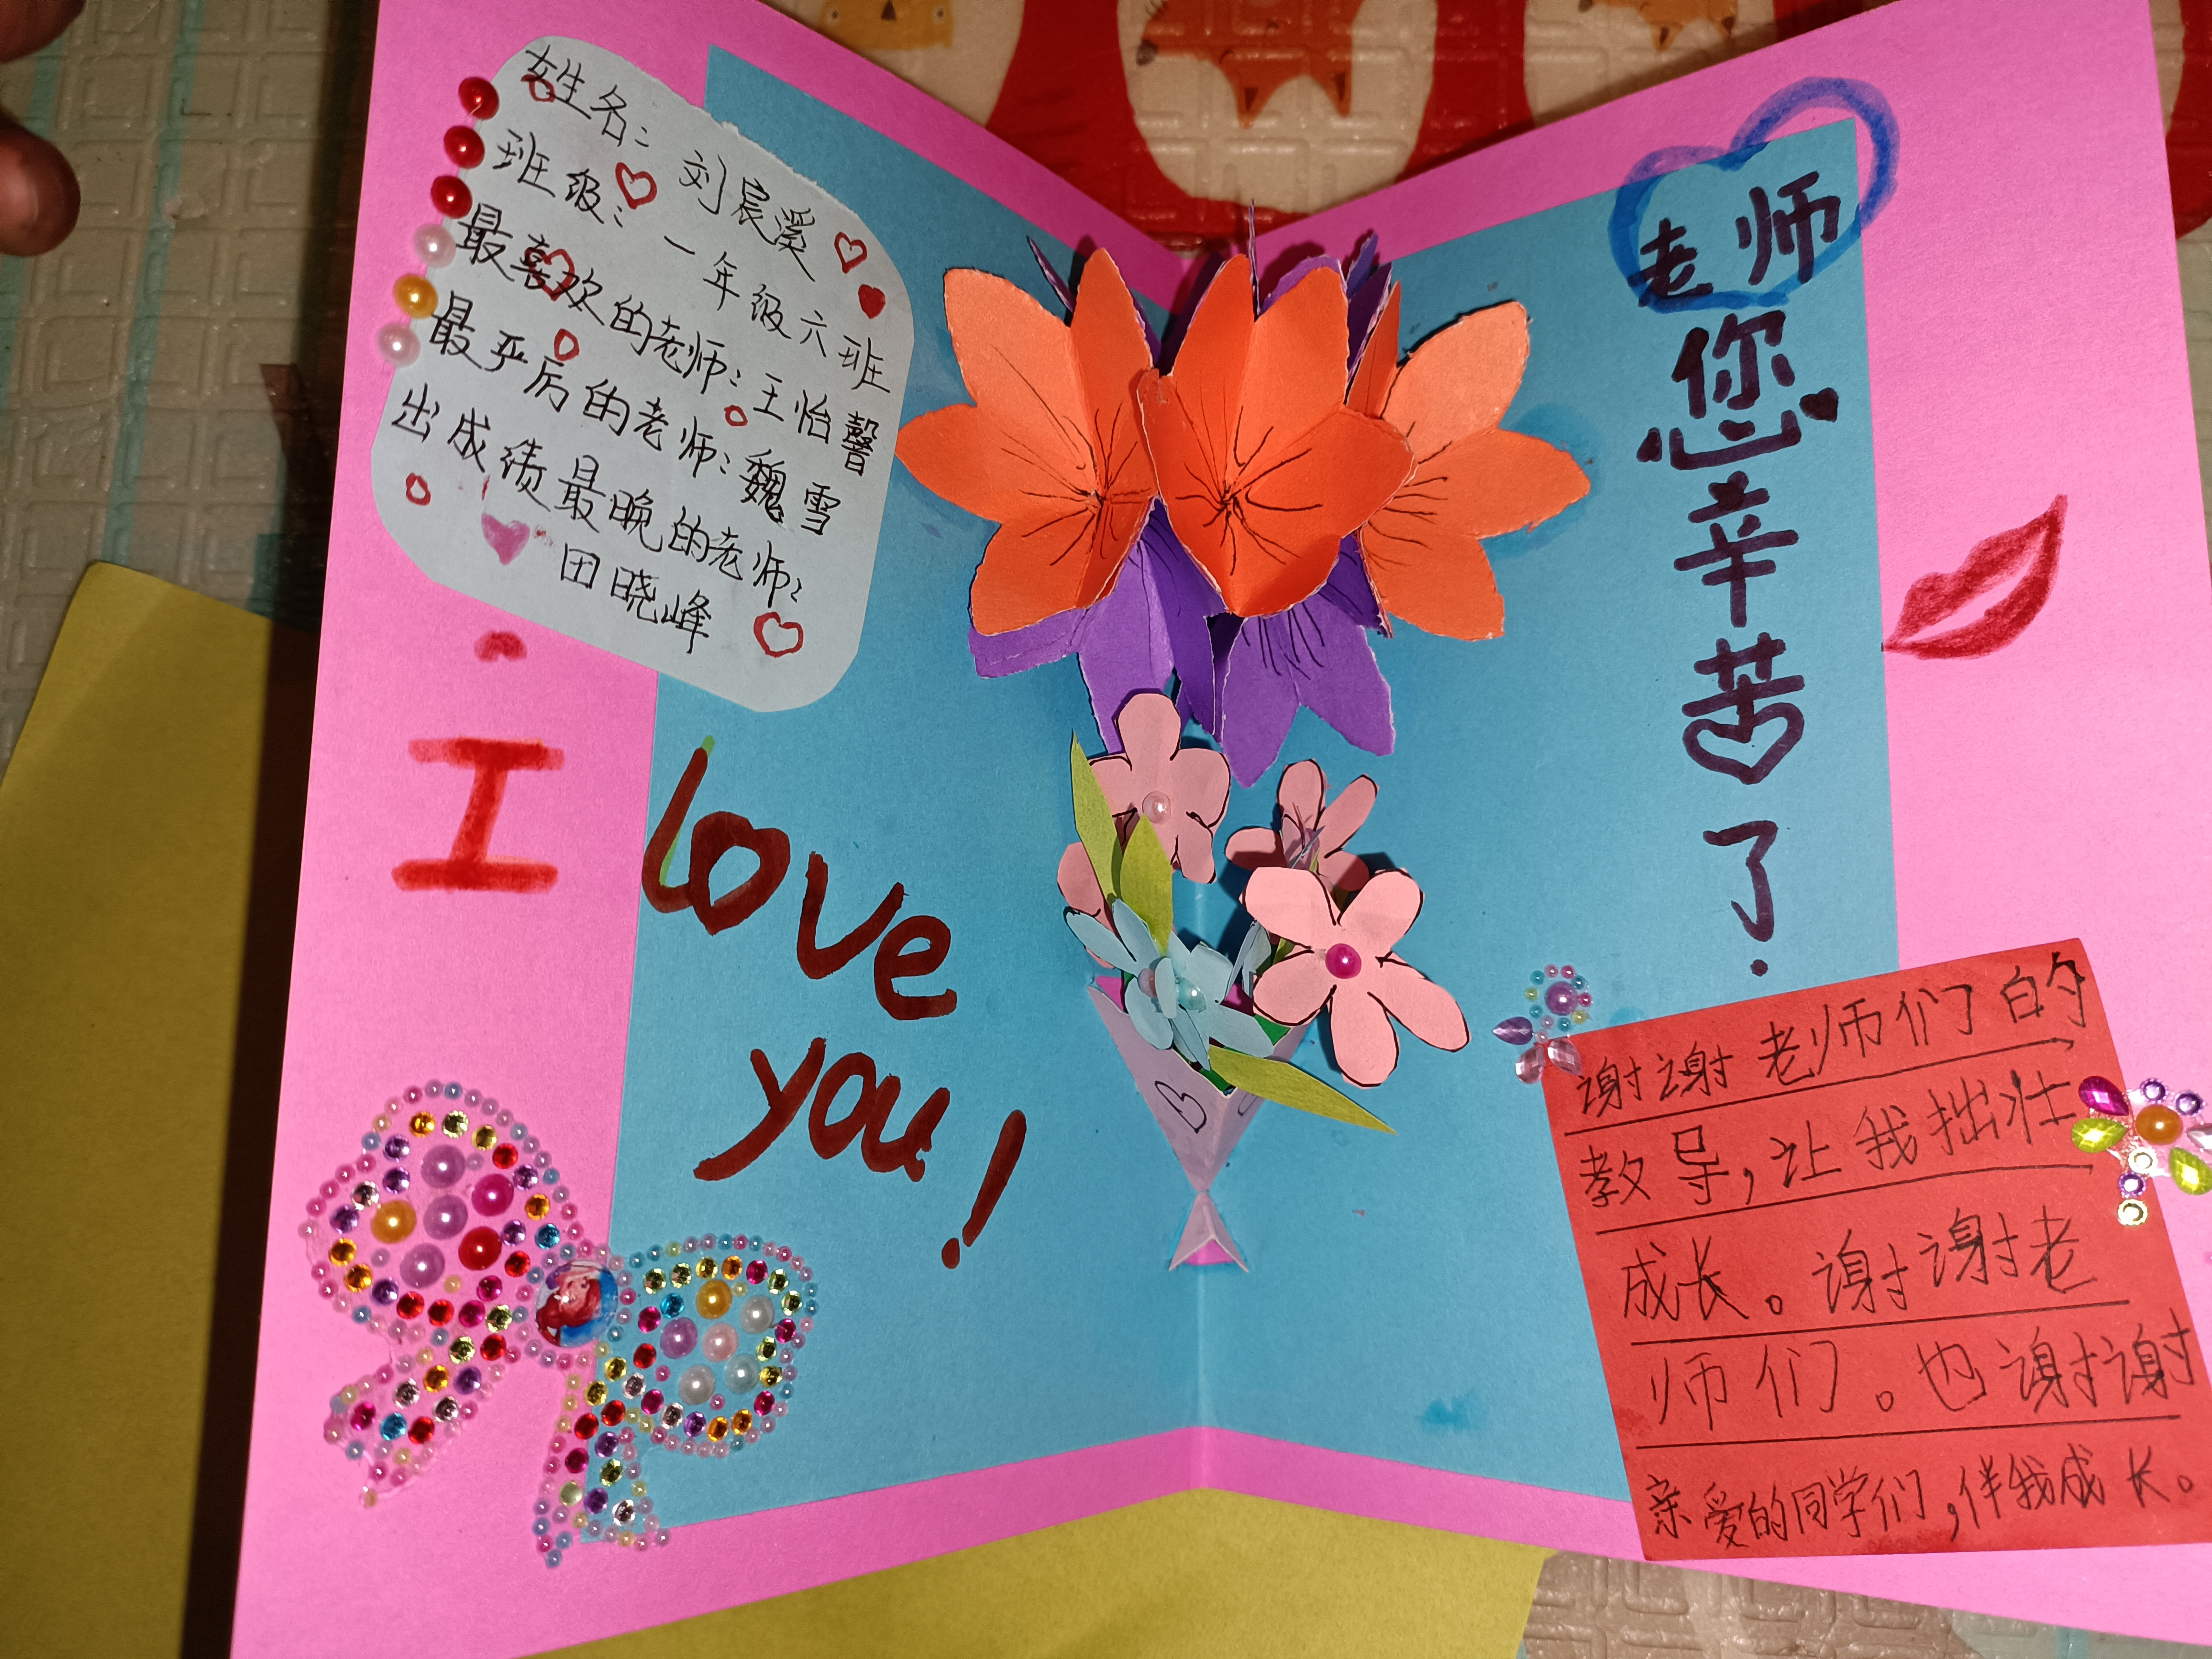 姓名：刘宸溪
班级：一年级六班
最喜欢的老师：王怡馨
最严厉的老师：魏雪
出成绩最晚的老师：
田晓峰
I
love
you!
老师
您
辛
苦
了.
谢谢老师们的
教导，让我拙壮
成长。谢谢老
师们。也谢谢
亲爱的同学们，伴我成长。